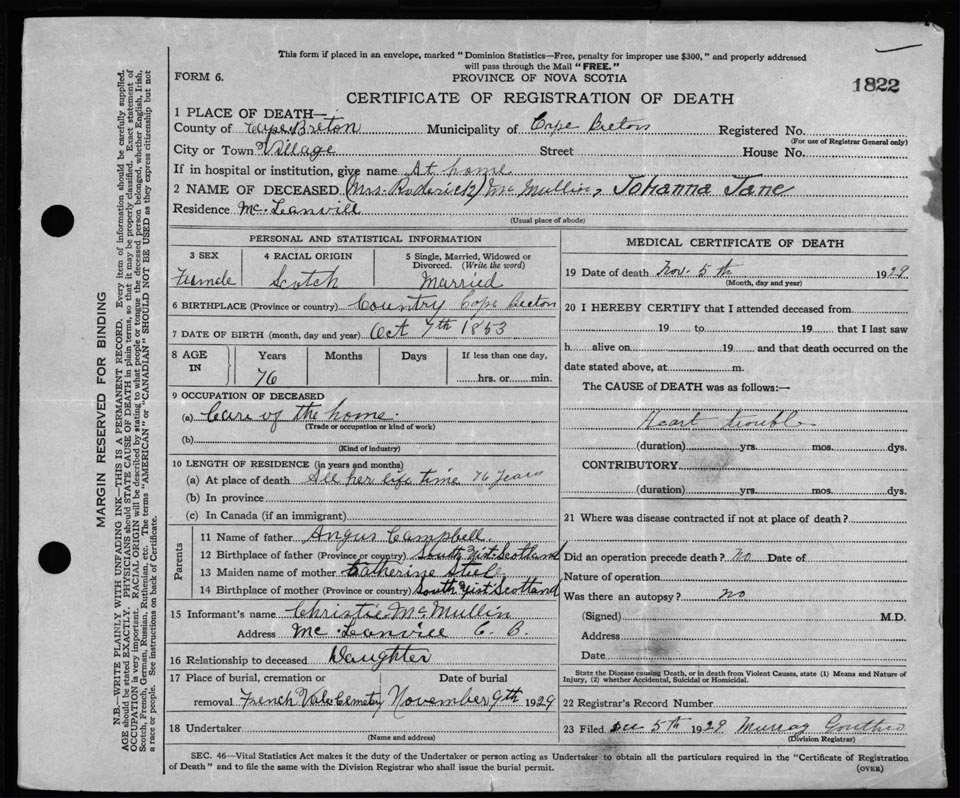 This form if placed in an envelope, marked "Dominion Statistics—Free, penalty for improper use $300," and properly addressed
will pass through the Mail "FREE."
FORM 6.
PROVINCE OF NOVA SCOTIA
1822
CERTIFICATE OF REGISTRATION OF DEATH
1 PLACE OF DEATH—
County of Cape Breton Municipality of Cape Breton Registered No.
(For use of Registrar General only)
City or Town Village Street House No.
If in hospital or institution, give name At home
2 NAME OF DECEASED Mrs. Roderick McMullin, Johanna Jane
Residence McLeanvill
(Usual place of abode)
PERSONAL AND STATISTICAL INFORMATION
3 SEX 4 RACIAL ORIGIN 5 Single, Married, Widowed or Divorced. (Write the word)
Female Scotch Married
6 BIRTHPLACE (Province or country) Country Cape Breton
7 DATE OF BIRTH (month, day and year) Oct 7th 1853
8 AGE IN Years Months Days If less than one day,
76 hrs. or min.
9 OCCUPATION OF DECEASED
(a) Care of the home.
(Trade or occupation or kind of work)
(b)
(Kind of industry)
10 LENGTH OF RESIDENCE (in years and months)
(a) At place of death All her life time 76 years
(b) In province
(c) In Canada (if an immigrant)
Parents
11 Name of father Angus Campbell.
12 Birthplace of father (Province or country) South Uist Scotland
13 Maiden name of mother Catherine Steele
14 Birthplace of mother (Province or country) South Uist Scotland
15 Informant's name Christie McMullin
Address McLeanvill C. B.
16 Relationship to deceased Daughter
17 Place of burial, cremation or removal Date of burial
French Vale Cemetry November 9th 1929
18 Undertaker
(Name and address)
MEDICAL CERTIFICATE OF DEATH
19 Date of death Nov. 5th 1929
(Month, day and year)
20 I HEREBY CERTIFY that I attended deceased from
19 to 19 that I last saw
h alive on 19 and that death occurred on the
date stated above, at m.
The CAUSE of DEATH was as follows:—
Heart trouble
(duration) yrs. mos. dys.
CONTRIBUTORY
(duration) yrs. mos. dys.
21 Where was disease contracted if not at place of death?
Did an operation precede death? No Date of
Nature of operation
Was there an autopsy? no
(Signed) M.D.
Address
Date
State the Disease causing Death, or in death from Violent Causes, state (1) Means and Nature of
Injury, (2) whether Accidental, Suicidal or Homicidal.
22 Registrar's Record Number
23 Filed Dec 5th 1929 Murray
(Division Registrar)
SEC. 46—Vital Statistics Act makes it the duty of the Undertaker or person acting as Undertaker to obtain all the particulars required in the "Certificate of Registration
of Death" and to file the same with the Division Registrar who shall issue the burial permit.
(OVER)
MARGIN RESERVED FOR BINDING
N.B.—WRITE PLAINLY WITH UNFADING INK—THIS IS A PERMANENT RECORD. Every item of information should be carefully supplied.
AGE should be stated EXACTLY. PHYSICIANS should STATE CAUSE OF DEATH in plain terms, so that it may be properly classified. Exact statement of
OCCUPATION is very important. RACIAL ORIGIN will be described by stating to what people or tongue the deceased person belonged, whether English, Irish,
Scotch, French, German, Russian, Ruthenian, etc. The terms "AMERICAN" or "CANADIAN" SHOULD NOT BE USED as they express citizenship but not
a race or people. See instructions on back of Certificate.